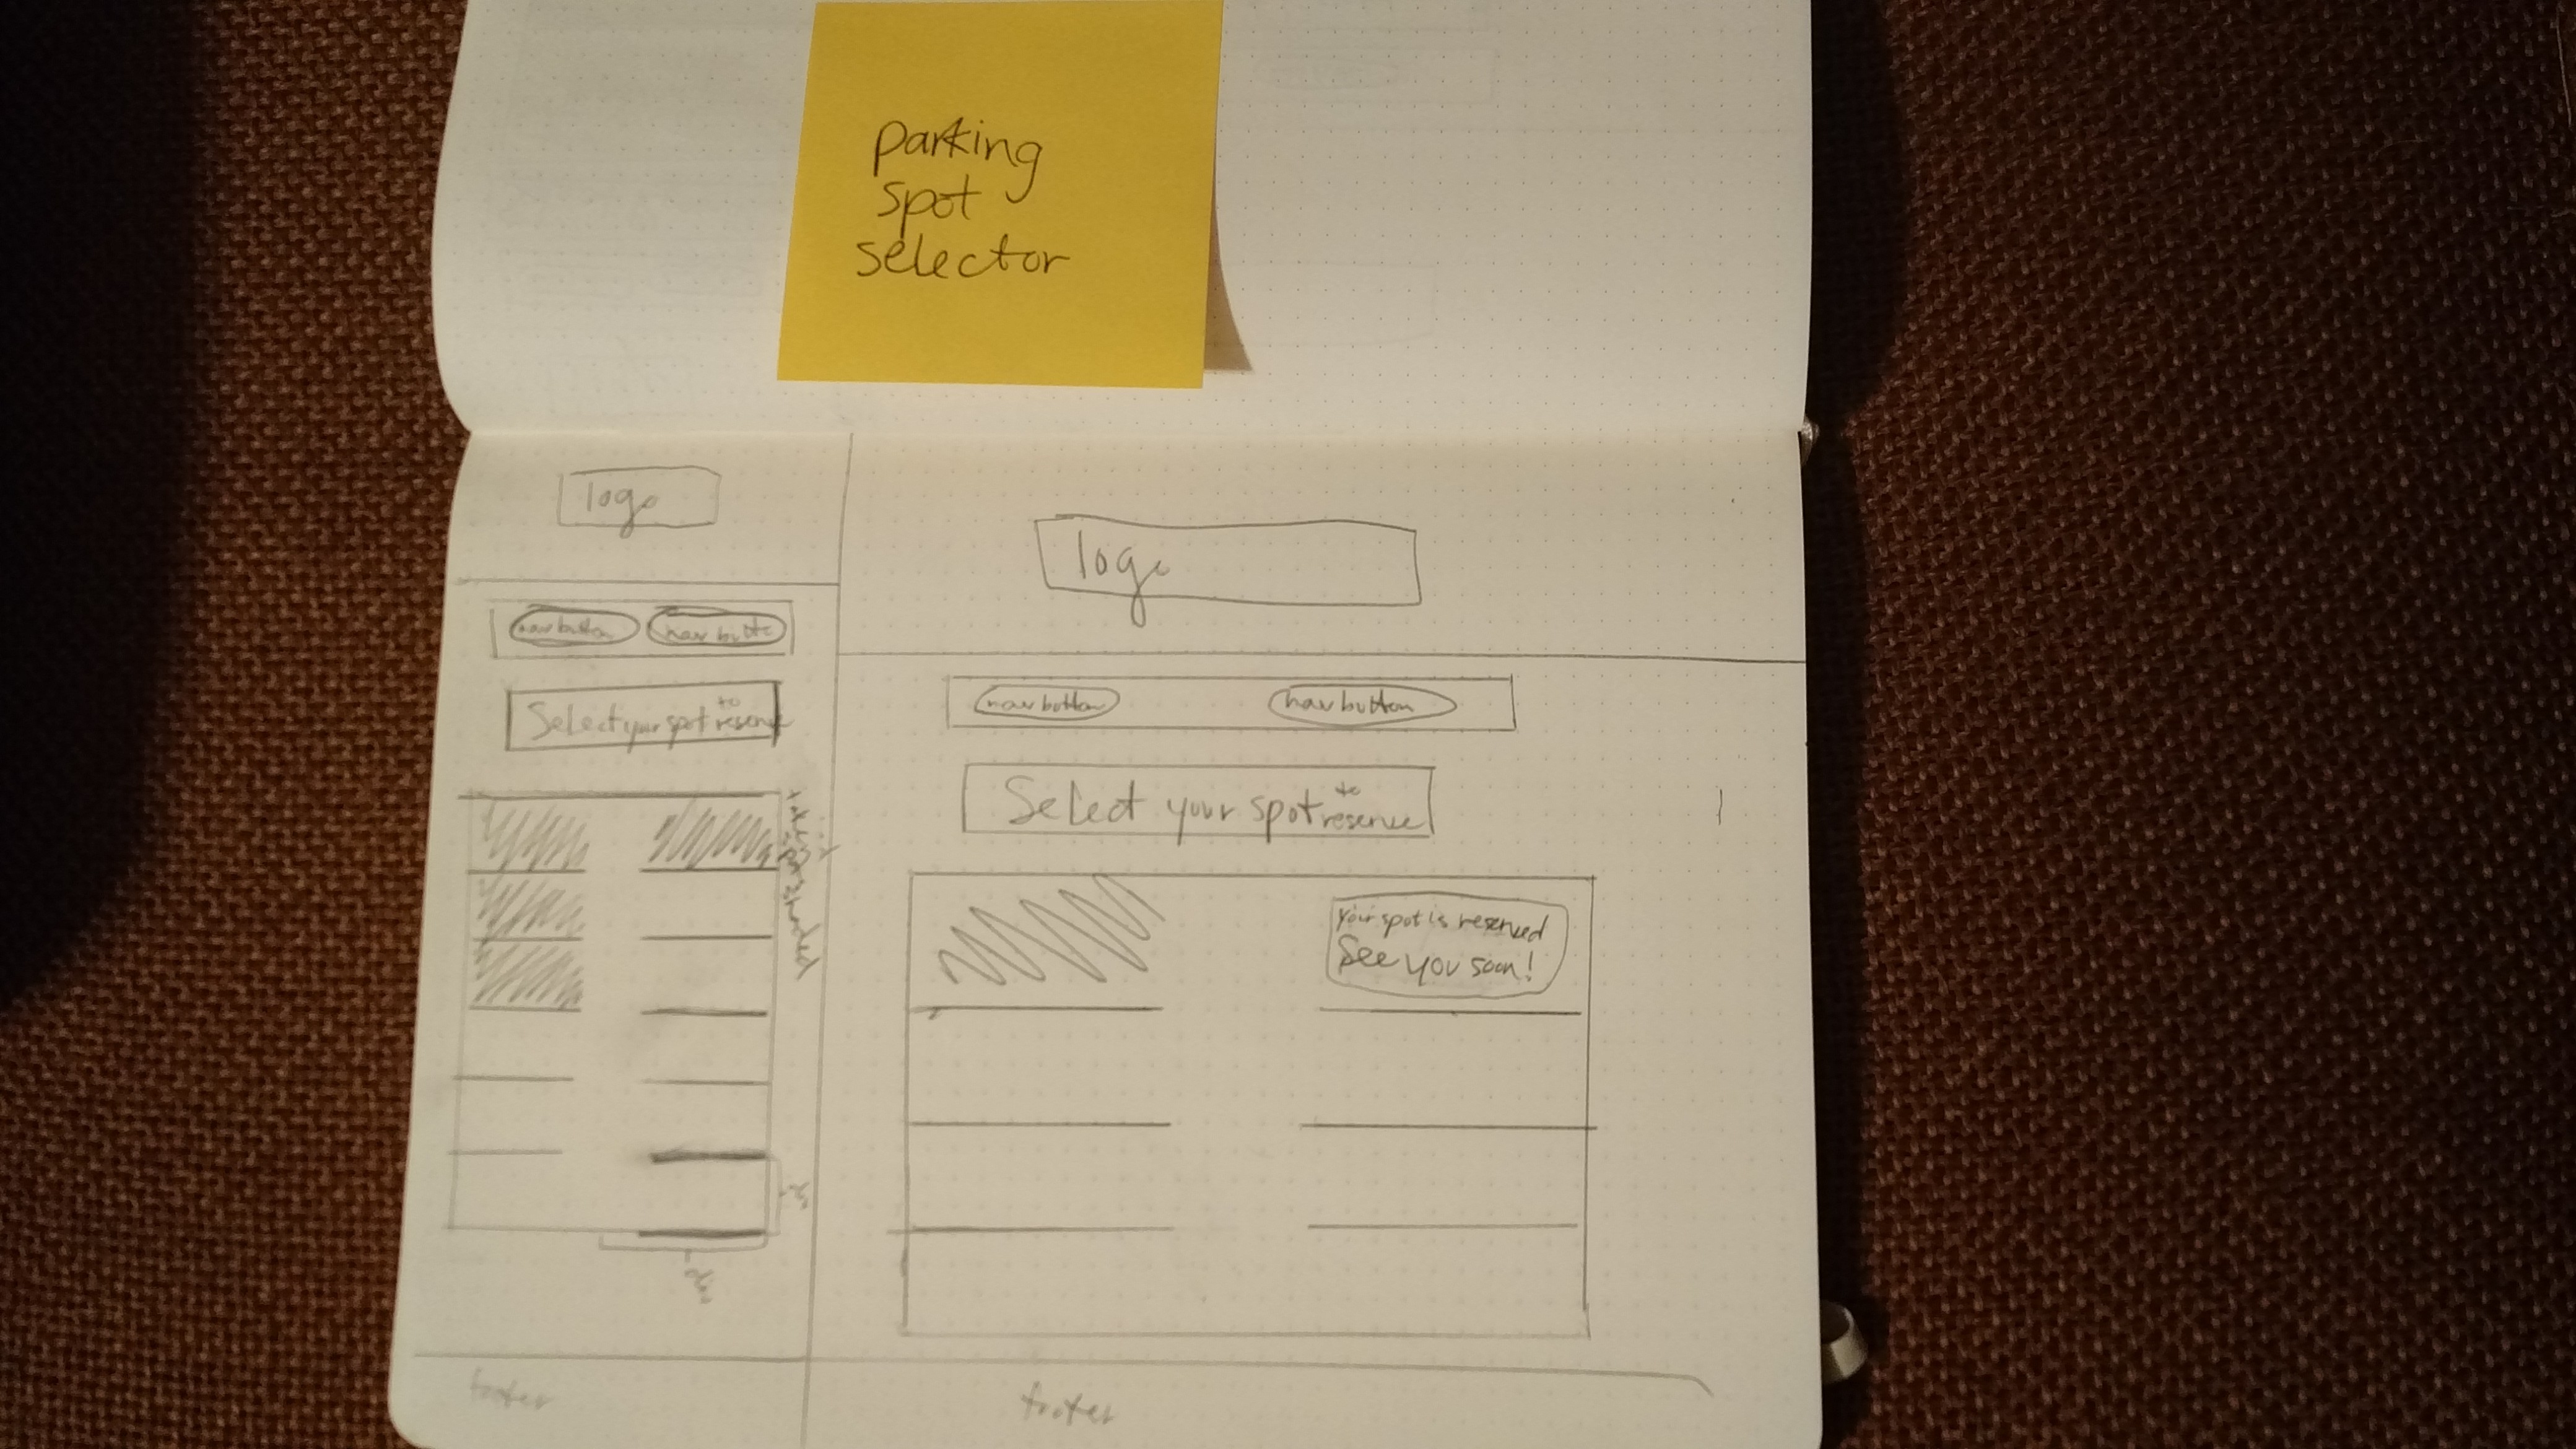 parking
spot
selector
logo
nav button
nav butto
Select your spot to reserve
taken spots shaded
footer
logo
nav button
nav button
Select your spot to reserve
your spot is reserved
See you soon!
footer